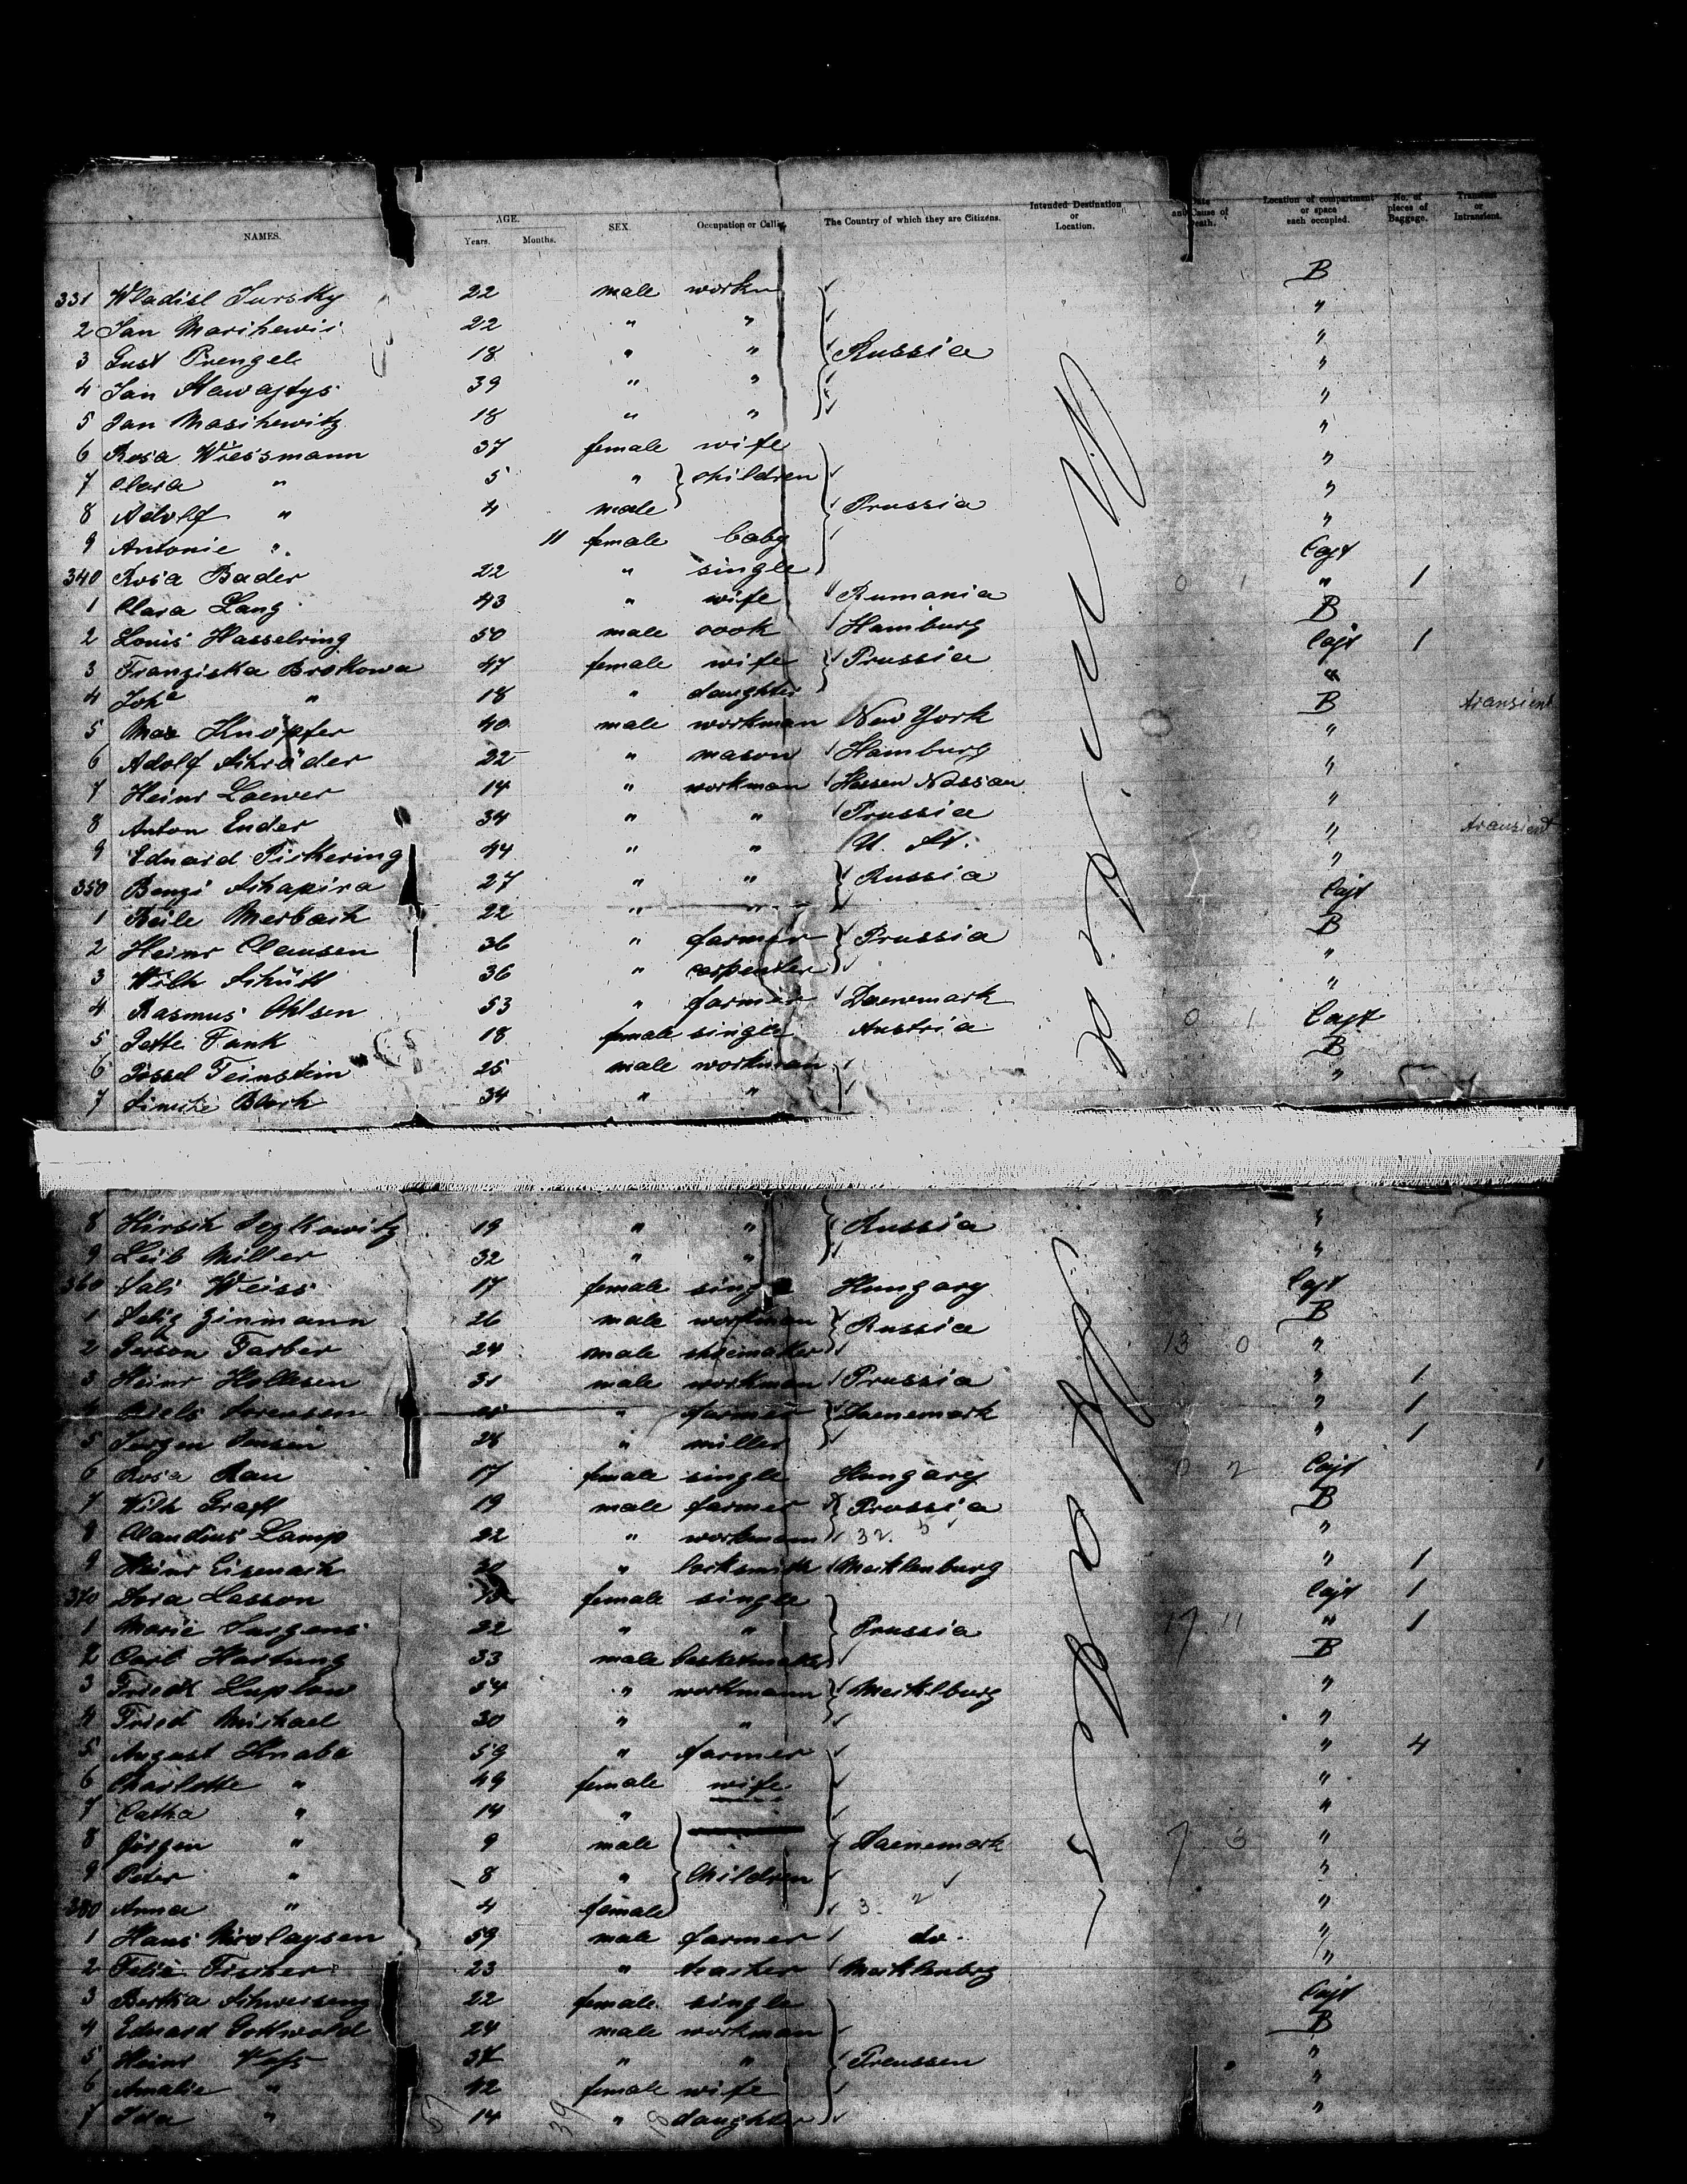 NAMES. AGE. Years. Months. SEX. Occupation or Calling The Country of which they are Citizens. Intended Destination or Location. Date and Cause of Death. Location of compartment or space each occupied. No. of pieces of Baggage. Transient or Intransient.
331 Wladisl Jursky 22 male workm B
2 Jan 22 " " "
3 Gust Prengel 18 " " Russia "
4 Jan 39 " " "
5 Jan Masihewitz 18 " " "
6 Rosa Wiessmann 37 female wife "
7 Clara " 5 " children "
8 Adolf " 4 male Prussia "
9 Antonie " 11 female baby "
340 Rosa Bader 22 " single Cajt
1 Clara Lang 43 " wife Rumania 0 1 " 1
2 Louis Hasselring 50 male cook Hamburg B
3 Franziska Brokowa 47 female wife Prussia Cajt 1
4 Joha " 18 " daughter "
5 Max Knöpfer 40 male workman New York B transient
6 Adolf Schröder 22 " mason Hamburg "
7 Heinr Laewer 14 " workman Hessen Nassau "
8 Anton Ender 34 " " Prussia "
9 Eduard Pickering 44 " " U. St. " transient
350 Benzi Schapira 27 " " Russia "
1 Beile Merbach 22 " " Cajt
2 Heinr Clausen 36 " farmer Prussia B
3 Wilh Schütt 36 " carpenter "
4 Rasmus Ohlsen 53 " farmer Daenemark "
5 Jette Fank 18 female single Austria 0 1 Cajt
6 Jossel Feinstein 25 male workman B
7 Block 34 " " "
8 Hirsch 19 " " Russia "
9 Leib Miller 32 " " "
360 Sali Weiss 17 female single Hungary Cajt
1 Selig Zinmann 26 male workman Russia B
2 Gerson Farber 24 male shoemaker 13 0 "
3 Heinr Hollesen 31 male workman Prussia " 1
4 Niels Sorensen " farmer Daenemark " 1
5 Jorgen Jensen 28 " miller " 1
6 Rosa Rau 17 female single Hungary 0 2 Cajt 1
7 Wilh Graff 19 male farmer Prussia B
8 Claudius Lamp 22 " workmann 32. 5 "
9 Heinr Eisenach " locksmith Mecklenburg " 1
370 Dora Lasson female single Cajt 1
1 Marie Jurgens 22 " " Prussia 17 11 " 1
2 Carl Hartung 33 male basketmaker B
3 Friedr Luplow 54 " workmann Mecklburg "
4 Fried Michael 30 " " "
5 August Knabe 59 " farmer " 4
6 Charlotte " 49 female wife "
7 Catha " 14 " "
8 Jörgen " 9 male Daenemark 7 3 "
9 Peter " 8 " Children "
380 Anna " 4 female 3 2 "
1 Hans Nicolaysen 59 male farmer do. "
2 Felix Fischer 23 " teacher Mecklenbrg "
3 Bertha 22 female single Cajt
4 Eduard Gottwald 24 male workman B
5 Heinr Voss 37 " " Preussen "
6 Amalie " 42 female wife "
7 Ida " 14 " daughter "